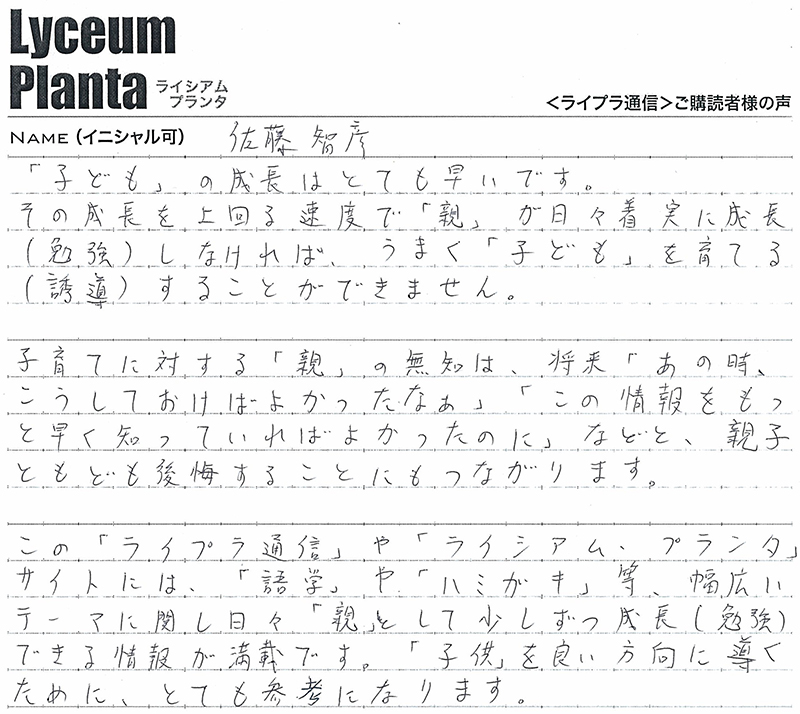 Lyceum
Planta ライシアム プランタ
<ライプラ通信>ご購読者様の声
NAME (イニシャル可) 佐藤 智彦
「子ども」の成長はとても早いです。
その成長を上回る速度で「親」が日々着実に成長
(勉強)しなければ、うまく「子ども」を育てる
(誘導)することができません。
子育てに対する「親」の無知は、将来「あの時、
こうしておけばよかったなぁ」「この情報をもっ
と早く知っていればよかったのに」などと、親子
ともども後悔することにもつながります。
この「ライプラ通信」や「ライシアム、プランタ」
サイトには、「語学」や「ハミガキ」等、幅広い
テーマに関し日々「親」として少しずつ成長(勉強)
できる情報が満載です。「子供」を良い方向に導く
ために、とても参考になります。